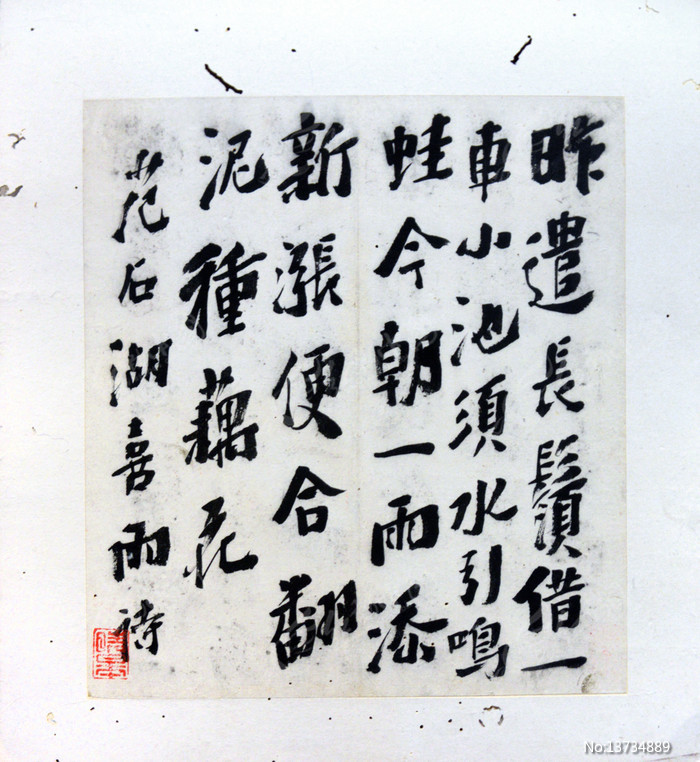 昨遣長鬚借一
車小池須水引鳴
蛙今朝一雨添
新漲便合翻
泥種藕花
范石湖喜雨詩
No:13734889